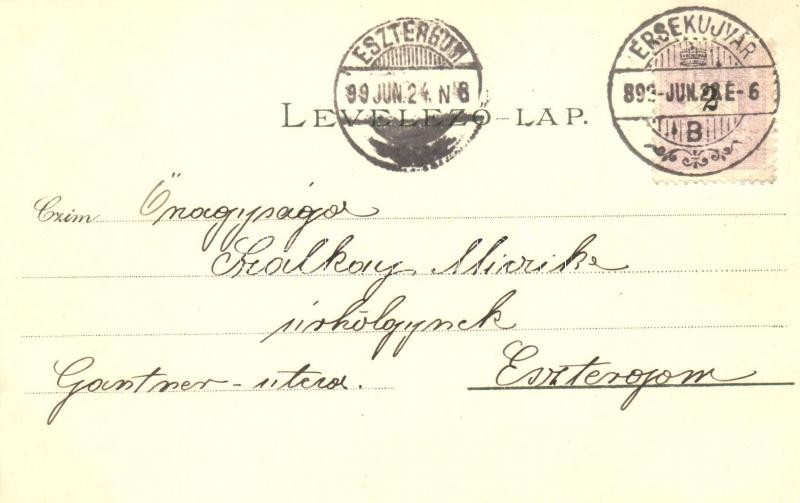 ESZTERGOM
99 JUN. 24. N 8
ÉRSEKUJVÁR
899-JUN. E-6
2
B
LEVELEZŐ-LAP.
Czim Őnagysága
Szalkay Mariske
úrhölgynek
Gantner-utca.
Esztergom